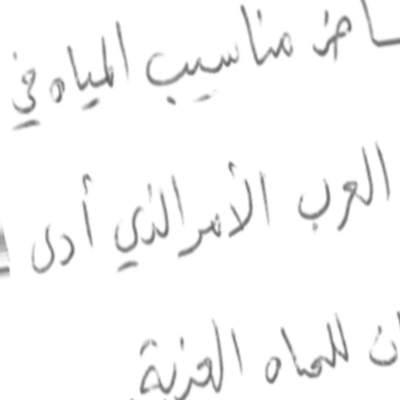 مناسيب المياه في
العرب الأمر الذي أدى
للمياه العذبة